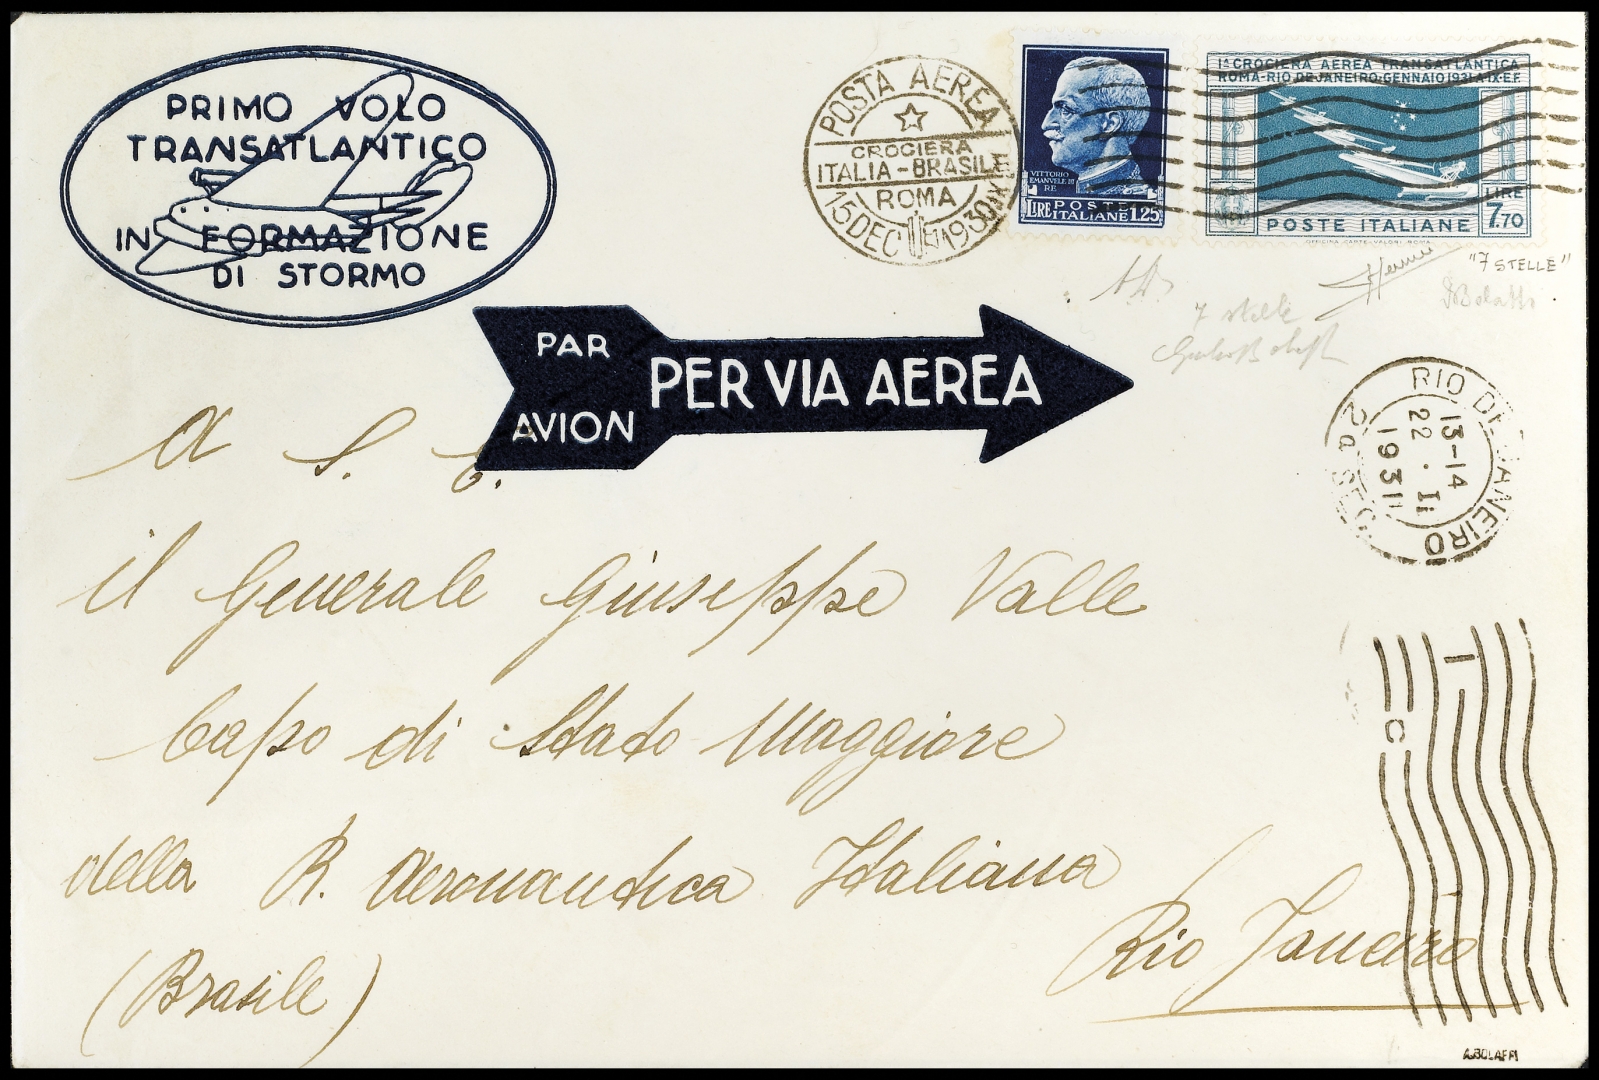 PRIMO VOLO
TRANSATLANTICO
IN FORMAZIONE
DI STORMO
POSTA AEREA
CROCIERA
ITALIA-BRASILE
ROMA
15 DEC 1930 IX
VITTORIO
EMANVELE III
RE
POSTE
LIRE ITALIANE 1.25
Iª CROCIERA AEREA TRANSATLANTICA
ROMA-RIO DE JANEIRO-GENNAIO 1931 A. IX E.F.
LIRE
7.70
POSTE ITALIANE
OFFICINA CARTE-VALORI ROMA
"7 STELLE"
7 stelle
PAR
AVION
PER VIA AEREA
RIO DE JANEIRO
13-14
22.II
1931
2a SEC
A S. E.
il Generale Giuseppe Valle
Capo di Stato Maggiore
della R. Aeronautica Italiana
Rio Janeiro
(Brasile)
A.BOLAFFI